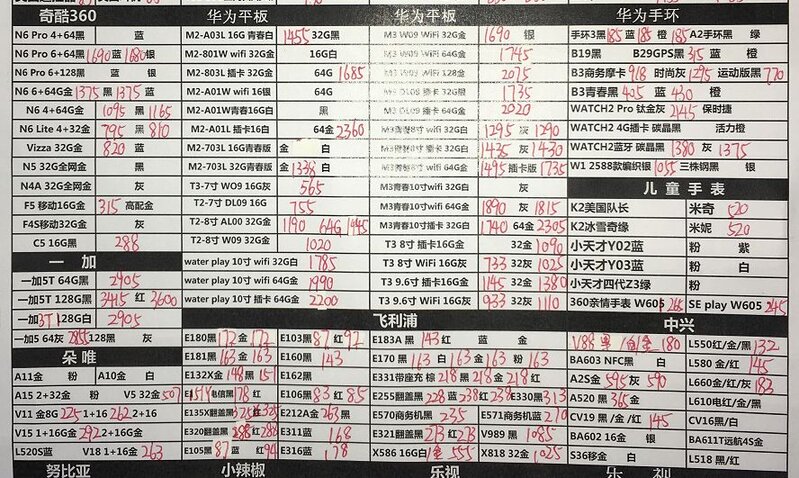 奇酷360
N6 Pro 4+64黑 蓝
N6 Pro 4+64金1690蓝1680银
N6 Pro 6+128黑 蓝 银
N6 6+64G金1375黑1375蓝
N6 4+64G金 1095 黑 1165
N6 Lite 4+32金 795 黑 810
Vizza 32G金 820 蓝
N5 32G全网金 黑
N4A 32G金 灰
F5 移动16G金 315 高配金
F4S移动32G金 灰
C5 16G黑 288
一 加
一加5T 64G黑 2905
一加5T 128G黑 3415 红 3600
一加3T128G金 2905
一加5 64灰 2855 128黑 灰
朵 唯
A11金 粉 A10金 白
A15 2+32金 粉 V5 32金 507
V11 金8G 225 1+16 262 2+16
V15 1+16G金 292 2+16G金
L520S蓝 V18 1+16金 263
努比亚
华为平板
M2-A03L 16G 青春白 1455 32G黑
M2-801W wifi 32G金 16G白
M2-803L 插卡 32G金 64G 1685
M2-A01W wifi 16G白 64G
M2-A01W青春16G白 黑
M2-A01L 插卡16白 64金2360
M2-703L 16G青春版 金 白
M2-703L 32G青春版 金 1338 白
T3-7寸 WO9 16G灰 565
T2-7寸 DL09 16G 755
T2-8寸 AL00 32G金 1190 64G 1445
T2-8寸 W09 32G金 1020
water play 10寸 wifi 32G白 1785
water play 10寸 wifi 64G金 1990
water play 10寸 插卡 64G金 2200
华为平板
M3 W09 WiFi 32G金 1690 银
M3 W09 WiFi 64G金 1745
M3 W09 WiFi 128金 2075
M3 DL09 插卡 32G金 1735
M3 DL09 插卡 64G金 2020
M3青春8寸 wifi 32G金 1295 灰 1290
M3青春8寸 插卡 32G金 1435 灰 1430
M3青春8寸 wifi 64G金 1495 插卡版 1735
M3青春10寸wifi 32G金 白 灰
M3青春10寸wifi 64G金 1890 灰 1815
M3青春10寸插卡 32G金 1740 64金 2305
T3 8寸 插卡16G金 32金 1090
T3 8寸 WiFi 16G灰 733 32灰 1025
T3 9.6寸 插卡16G金 1145 32金 1380
T3 9.6寸 WiFi 16G灰 933 32灰 1110
飞利浦
E180黑 172 金 172 E103黑 87 红 92 E183A 黑 143 红 蓝 金
E181黑 163 金 163 E160黑 143 E170 黑 163 白 163 金 163 粉 163
E132X金 148 黑 151 E162黑 E331带座充 棕 218 黑 218 红 218
E151Y 电信黑 178 红 E106黑 83 红 85 E255翻盖黑 228 蓝 238 红 238 E330黑 313
E135X翻盖黑 325 红 325 E212A金 263 黑 E570商务机黑 235 E571商务机蓝 270
E320翻盖黑 288 红 288 E311蓝 168 E321翻盖黑 213 红 213 V989 黑 1085
E105黑 87 蓝 红 94 E316蓝 178 X586 16G白/金 555 X818 32金 1025
小辣椒
乐视
华为手环
手环3黑 185 蓝 185 橙 185 A2手环黑 绿
B19黑 B29GPS黑 315 蓝 橙
B3商务摩卡 918 时尚灰 1295 运动版黑 770
B3青春黑 405 蓝 430 橙
WATCH2 Pro 钛金灰 2145 保时捷
WATCH2 4G插卡 碳晶黑 活力橙
WATCH2蓝牙 碳晶黑 1380 灰 1375
W1 2588款编织银 1055 三株钢黑 银
儿 童 手 表
K2美国队长 米奇 520
K2冰雪奇缘 米妮 520
小天才Y02蓝 粉 紫
小天才Y03蓝 粉 白
小天才四代Z3绿 粉
360亲情手表 W605 265 SE play W605 245
中兴
V88 黑/金 180 L550红/金/黑 132
BA603 NFC黑 白 L580 金/红 145
A2S金 595 灰 590 L660金/红/灰 183
A520 黑 365 金 L610电红/金/黑
CV19 黑/金/红 145 CV16黑/白
BA602 16金 银 BA611T远航4S金
S36移金 白 L518 黑/红
乐 视